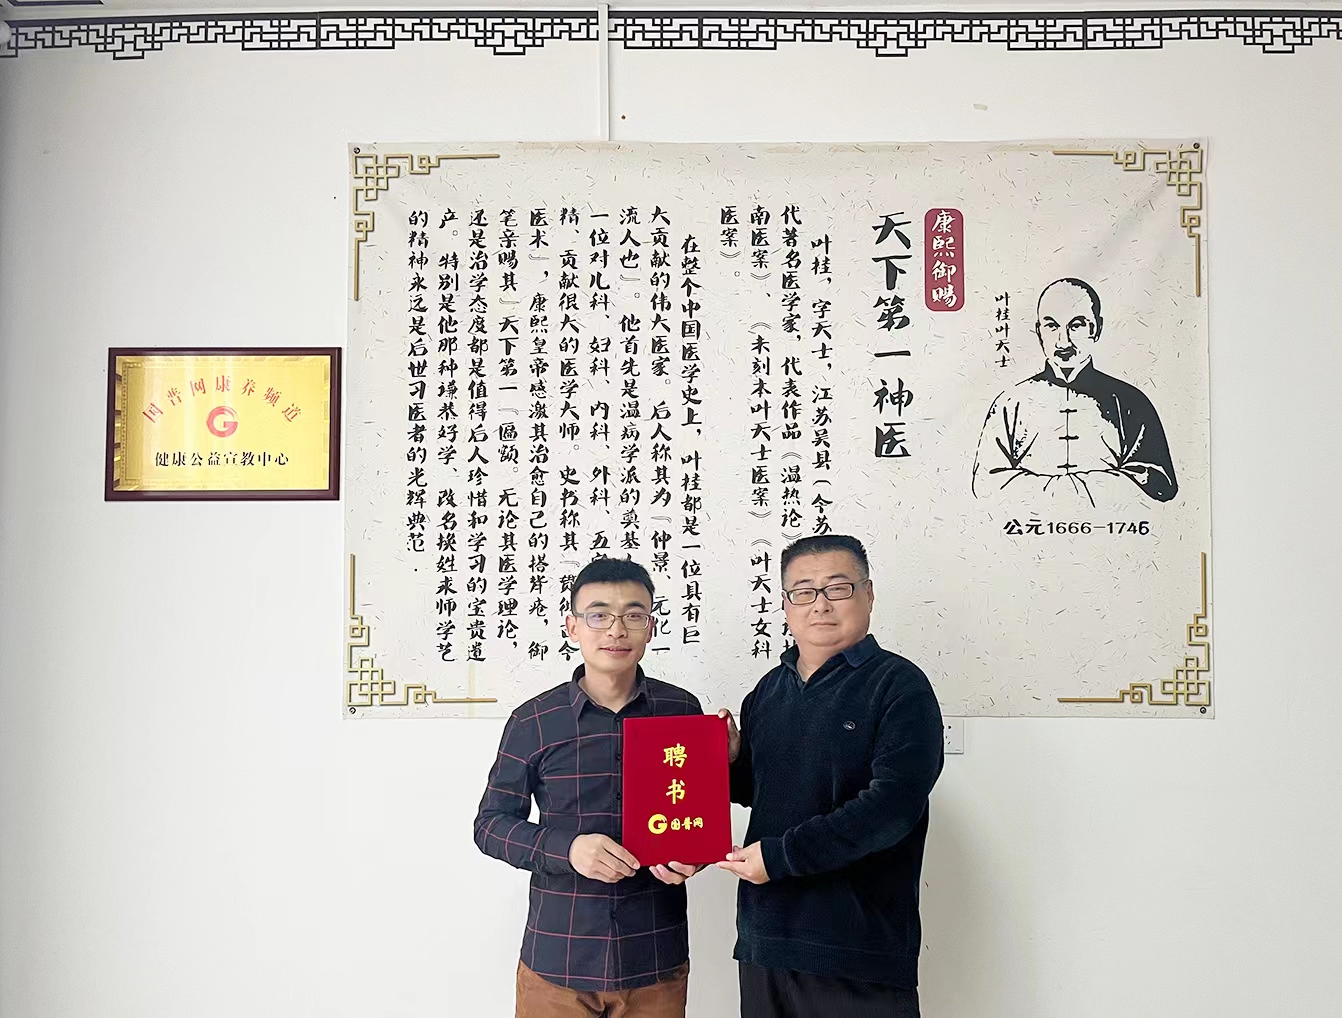 国普网康养频道
健康公益宣教中心
康熙御赐
天下第一神医
叶桂叶天士
公元1666-1746
叶桂，字天士，江苏吴县（今苏
代著名医学家，代表作品《温热论》
南医案》、《未刻本叶天士医案》《叶天士女科
医案》。
在整个中国医学史上，叶桂都是一位具有巨
大贡献的伟大医家。后人称其为『仲景、元化一
流人也』。他首先是温病学派的奠基
一位对儿科、妇科、内科、外科、五
精、贡献很大的医学大师。史书称其『
医术』，康熙皇帝感激其治愈自己的搭背疮，御
笔亲赐其』天下第一『匾额。无论其医学理论，
还是治学态度都是值得后人珍惜和学习的宝贵遗
产。特别是他那种谦恭好学、改名换姓求师学艺
的精神永远是后世习医者的光辉典范.
聘
书
国普网